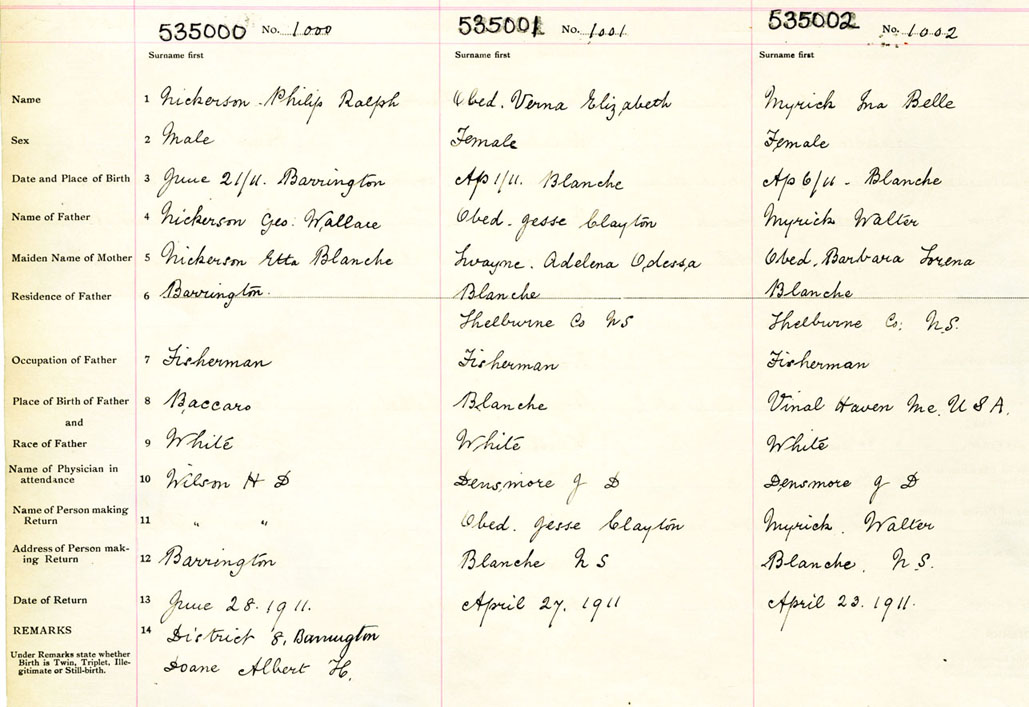 535000 No. 1000 535001 No. 1001 535002 No. 1002
Surname first Surname first Surname first
Name 1 Nickerson Philip Ralph Obed. Verna Elizabeth Myrick Ina Belle
Sex 2 Male Female Female
Date and Place of Birth 3 June 21/11. Barrington Ap 1/11. Blanche Ap 6/11 - Blanche
Name of Father 4 Nickerson Geo. Wallace Obed. Jesse Clayton Myrick Walter
Maiden Name of Mother 5 Nickerson Etta Blanche Swayne. Adelena Odessa Obed, Barbara Lorena
Residence of Father 6 Barrington. Blanche Blanche
Shelburne Co NS Shelburne Co. N.S.
Occupation of Father 7 Fisherman Fisherman Fisherman
Place of Birth of Father 8 Baccaro Blanche Vinal Haven Me. U S A.
and
Race of Father 9 White White White
Name of Physician in
attendance 10 Wilson H D Densmore J D Densmore J D
Name of Person making
Return 11 " " Obed. Jesse Clayton Myrick. Walter
Address of Person mak-
ing Return 12 Barrington Blanche N S Blanche. N.S.
Date of Return 13 June 28. 1911. April 27. 1911 April 23. 1911.
REMARKS 14 District 8, Barrington
Under Remarks state whether
Birth is Twin, Triplet, Ille-
gitimate or Still-birth. Doane Albert H.